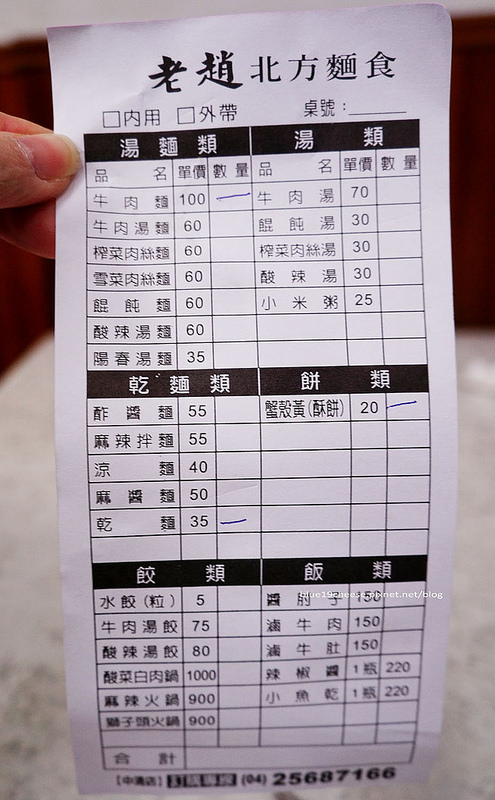 老趙北方麵食
□內用 □外帶 桌號：
湯麵類 湯類
品名 單價 數量 品名 單價 數量
牛肉麵 100 一 牛肉湯 70
牛肉湯麵 60 餛飩湯 30
榨菜肉絲麵 60 榨菜肉絲湯 30
雪菜肉絲麵 60 酸辣湯 30
餛飩麵 60 小米粥 25
酸辣湯麵 60
陽春湯麵 35
乾麵類 餅類
酢醬麵 55 蟹殼黃(酥餅) 20 一
麻辣拌麵 55
涼麵 40
麻醬麵 50
乾麵 35 一
餃類 飯類
水餃(粒) 5 醬肘子 150
blue19cheese.pixnet.net/blog
牛肉湯餃 75 滷牛肉 150
酸辣湯餃 80 滷牛肚 150
酸菜白肉鍋 1000 辣椒醬 1瓶 220
麻辣火鍋 900 小魚乾 1瓶 220
獅子頭火鍋 900
合計
【中清店】訂購專線 (04) 25687166